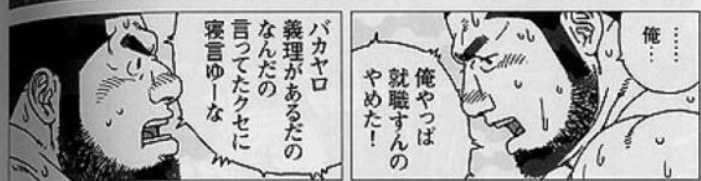 ……
俺…
俺やっぱ
就職すんの
やめた！
バカヤロ
義理があるだの
なんだの
言ってたクセに
寝言ゆーな